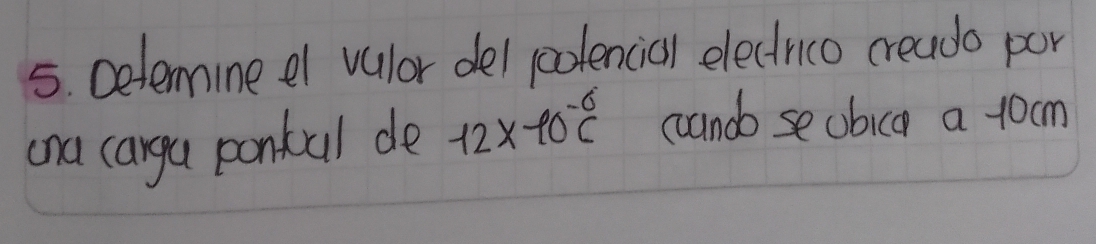 5. Determine el valor del potencial electrico creado por
una carga pontual de 12x10⁻⁶C cuando se obica a 10cm